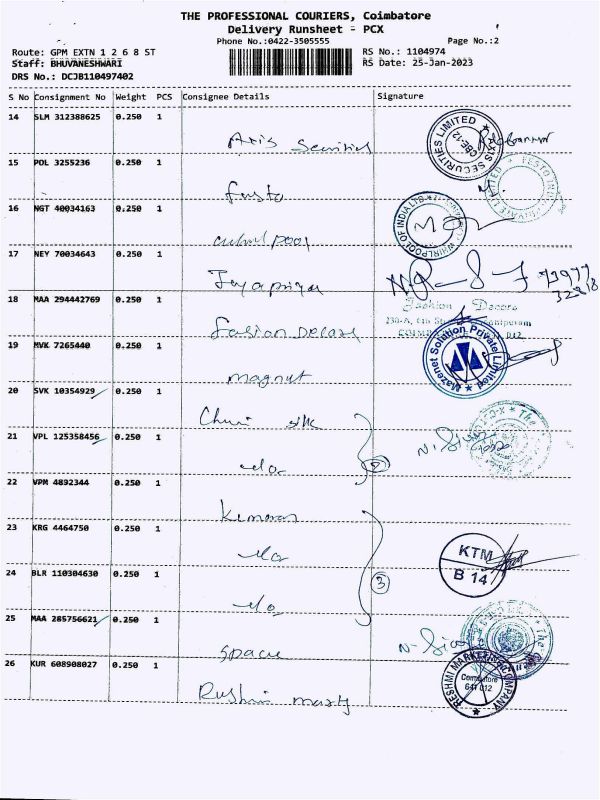 THE PROFESSIONAL COURIERS, Coimbatore
Delivery Runsheet - PCX
Phone No.:0422-3505555 Page No.:2
Route: GPM EXTN 1 2 6 8 ST RS No.: 1104974
Staff: BHUVANESHWARI RS Date: 25-Jan-2023
DRS No.: DCJB110497402
S No Consignment No Weight PCS Consignee Details Signature
14 SLM 312388625 0.250 1
Axis Securities
AXIS SECURITIES LIMITED CBE-12
15 POL 3255236 0.250 1
festo
16 NGT 40034163 0.250 1
WHIRLPOOL OF INDIA LTD
whirlpool
17 NEY 70034643 0.250 1
Jayapriya
18 MAA 294442769 0.250 1
Fashion Decors
Fasion Decors
19 MVK 7265440 0.250 1
Mazenet Solution Private Limited
magnut
20 SVK 10354929 0.250 1
Chennai silk
21 VPL 125358456 0.250 1
do
2
22 VPM 4892344 0.250 1
Kumaran
23 KRG 4464750 0.250 1
do
KTM
B 14
24 BLR 110304630 0.250 1
do
3
25 MAA 285756621 0.250 1
space
26 KUR 608908027 0.250 1
RESHMI MARKETING COMPANY
Coimbatore
641 012